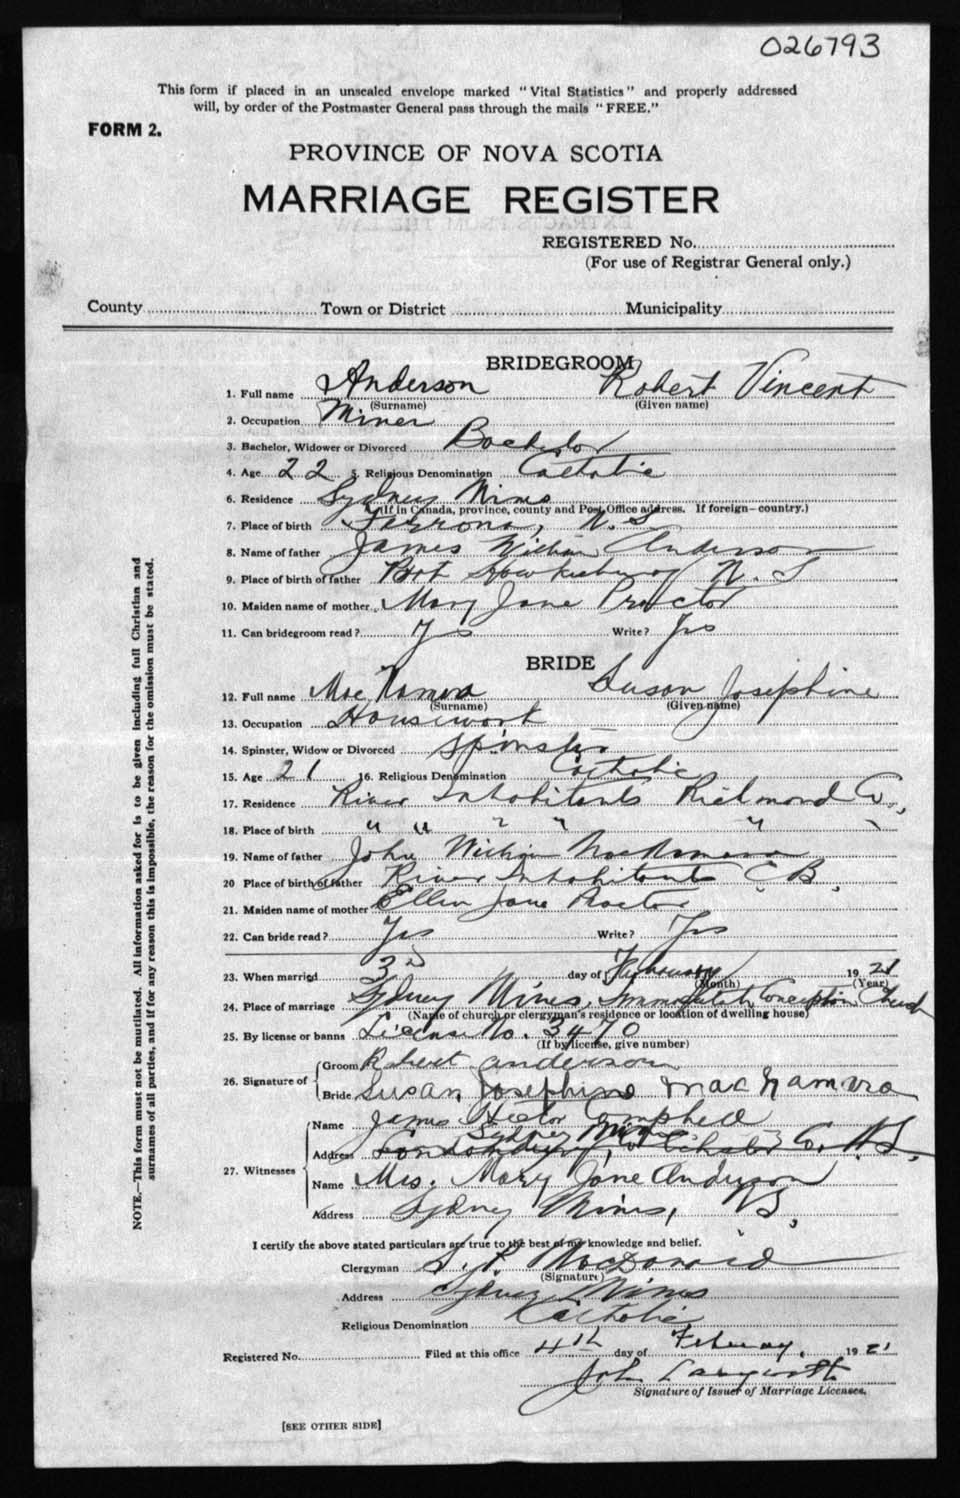 026793
This form if placed in an unsealed envelope marked "Vital Statistics" and properly addressed
will, by order of the Postmaster General pass through the mails "FREE."
FORM 2.
PROVINCE OF NOVA SCOTIA
MARRIAGE REGISTER
REGISTERED No.
(For use of Registrar General only.)
County Town or District Municipality
BRIDEGROOM
1. Full name Anderson Robert Vincent
(Surname) (Given name)
2. Occupation Miner
3. Bachelor, Widower or Divorced Bachelor
4. Age 22 5. Religious Denomination Catholic
6. Residence Sydney Mines
(If in Canada, province, county and Post Office address. If foreign—country.)
7. Place of birth Ferrona, N. S
8. Name of father James William Anderson
9. Place of birth of father Port Hawkesbury N. S
10. Maiden name of mother Mary Jane Proctor
11. Can bridegroom read? Yes Write? Yes
BRIDE
12. Full name MacNamara Susan Josephine
(Surname) (Given name)
13. Occupation Housework
14. Spinster, Widow or Divorced Spinster
15. Age 21 16. Religious Denomination Catholic
17. Residence River Inhabitants Richmond Co.,
18. Place of birth " " " " " "
19. Name of father John William MacNamara
20 Place of birth of father River Inhabitants C. B.
21. Maiden name of mother Ellen Jane Proctor
22. Can bride read? Yes Write? Yes
23. When married 3rd day of February 1921
(Month) (Year)
24. Place of marriage Sydney Mines, Immaculate Conception Church
(Name of church or clergyman's residence or location of dwelling house)
25. By license or banns License No. 3470
(If by license, give number)
26. Signature of
Groom Robert anderson
Bride Susan Josephine MacNamara
27. Witnesses
Name James Hector Campbell
Sydney Mines
Address Londonderry, Colchester Co. N.S.
Name Mrs. Mary Jane Anderson
Address Sydney Mines,
I certify the above stated particulars are true to the best of my knowledge and belief.
Clergyman MacDonald
(Signature)
Address Sydney Mines
Religious Denomination Catholic
Registered No. Filed at this office 4th day of February. 1921
John Langworth
Signature of Issuer of Marriage Licenses.
[SEE OTHER SIDE]
NOTE.—This form must not be mutilated. All information asked for is to be given including full Christian and
surnames of all parties, and if for any reason this is impossible, the reason for the omission must be stated.